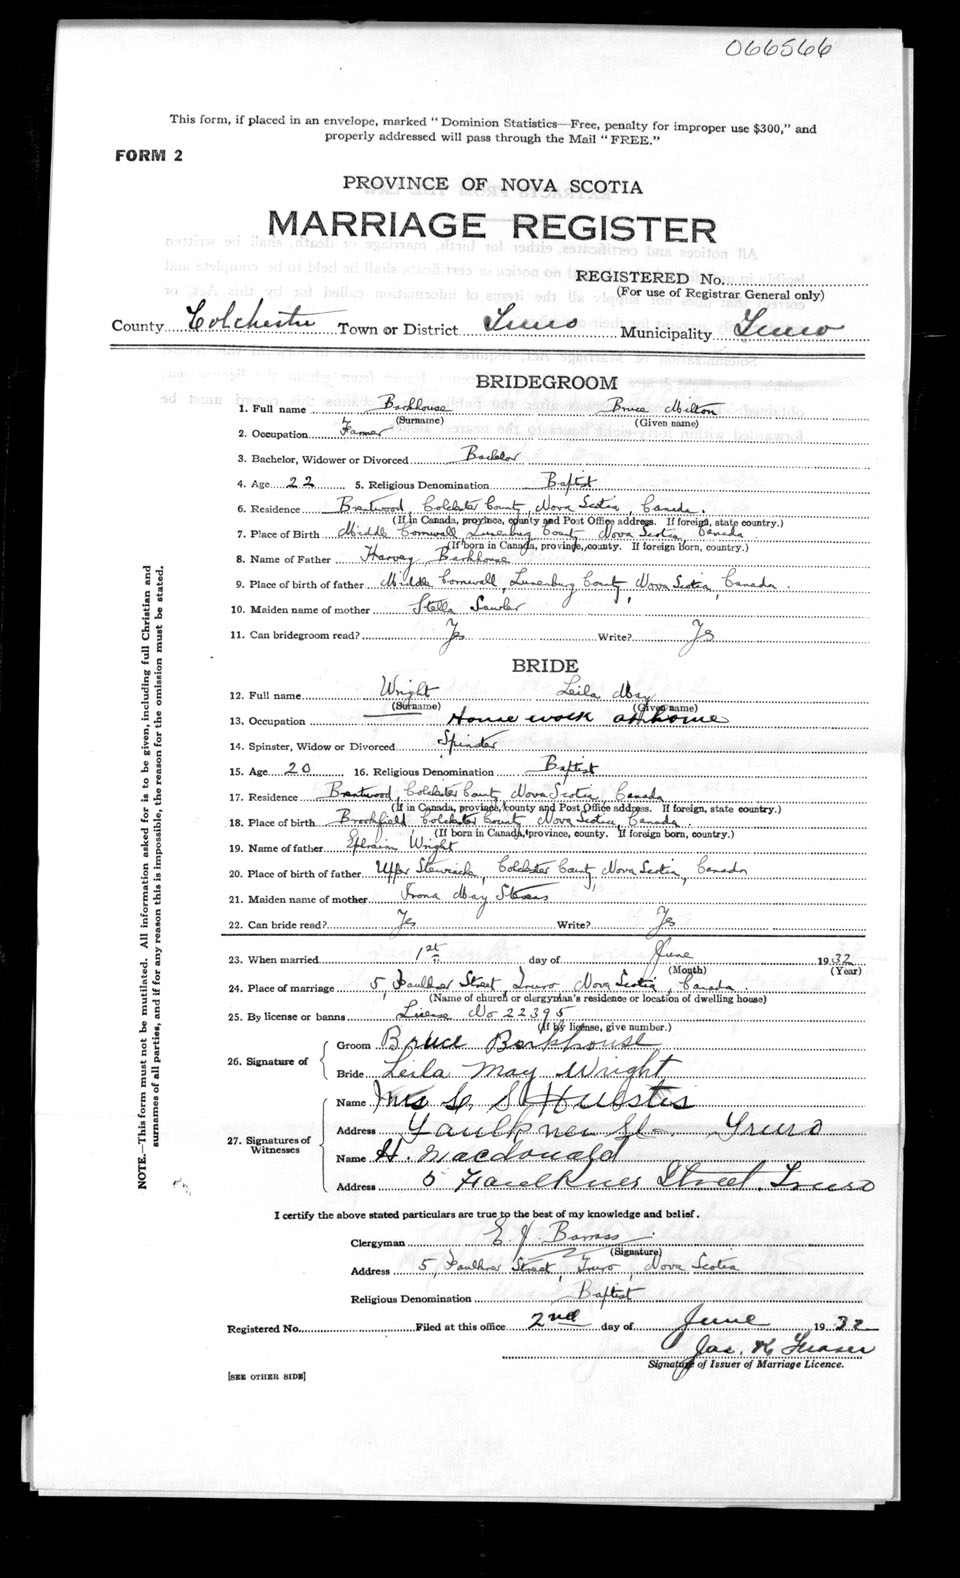 066566
This form, if placed in an envelope, marked "Dominion Statistics—Free, penalty for improper use $300," and
properly addressed will pass through the Mail "FREE."
FORM 2
PROVINCE OF NOVA SCOTIA
MARRIAGE REGISTER
REGISTERED No.
(For use of Registrar General only)
County Colchester Town or District Truro Municipality Truro
BRIDEGROOM
1. Full name Barkhouse Bruce Milton
(Surname) (Given name)
2. Occupation Farmer
3. Bachelor, Widower or Divorced Bachelor
4. Age 22 5. Religious Denomination Baptist
6. Residence Brentwood, Colchester County, Nova Scotia, Canada.
(If in Canada, province, county and Post Office address. If foreign, state country.)
7. Place of Birth Middle Cornwall, Lunenburg County, Nova Scotia, Canada
(If born in Canada, province, county. If foreign born, country.)
8. Name of Father Harvey Barkhouse
9. Place of birth of father Middle Cornwall, Lunenburg County, Nova Scotia, Canada.
10. Maiden name of mother Stella Sawler
11. Can bridegroom read? Yes Write? Yes
BRIDE
12. Full name Wright Leila May
(Surname) (Given name)
13. Occupation House work at home
14. Spinster, Widow or Divorced Spinster
15. Age 20 16. Religious Denomination Baptist
17. Residence Brentwood, Colchester County, Nova Scotia, Canada
(If in Canada, province, county and Post Office address. If foreign, state country.)
18. Place of birth Brookfield, Colchester County, Nova Scotia, Canada.
(If born in Canada, province, county. If foreign born, country.)
19. Name of father Ephraim Wright
20. Place of birth of father Upper Stewiacke, Colchester County, Nova Scotia, Canada
21. Maiden name of mother May Stevens
22. Can bride read? Yes Write? Yes
23. When married 1st day of June 1932
(Month) (Year)
24. Place of marriage 5, Faulkner Street, Truro, Nova Scotia, Canada.
(Name of church or clergyman's residence or location of dwelling house)
25. By license or banns License No 22395
(If by license, give number.)
26. Signature of Groom Bruce Barkhouse
Bride Leila May Wright
27. Signatures of Witnesses Name Mrs S Huestis
Address Faulkner St Truro
Name H. Macdonald
Address 5 Faulkner Street Truro
I certify the above stated particulars are true to the best of my knowledge and belief.
Clergyman E. J. Barrass
(Signature)
Address 5, Faulkner Street, Truro, Nova Scotia
Religious Denomination Baptist
Registered No. Filed at this office 2nd day of June 1932
Jas. K Fraser
Signature of Issuer of Marriage Licence.
[SEE OTHER SIDE]
NOTE.—This form must not be mutilated. All information asked for is to be given, including full Christian and
surnames of all parties, and if for any reason this is impossible, the reason for the omission must be stated.